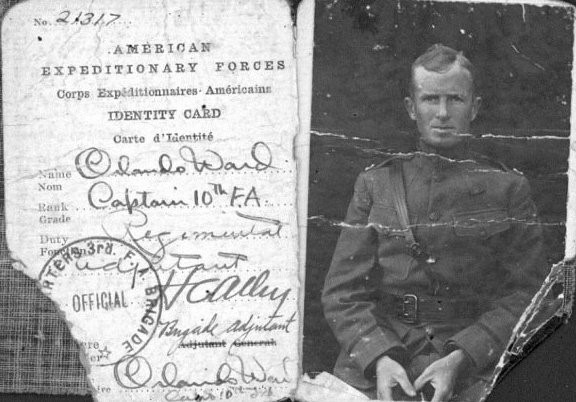 No. 21317
AMERICAN
EXPEDITIONARY FORCES
Corps Expéditionnaires Américains
IDENTITY CARD
Carte d'Identité
Name Orlando Ward
Nom
Rank Captain 10th F.A.
Grade
Duty Regimental
Adjutant
HEADQUARTERS 3rd F. A. BRIGADE
OFFICIAL
Brigade Adjutant
Adjutant General
Orlando Ward
Capt 10th FA